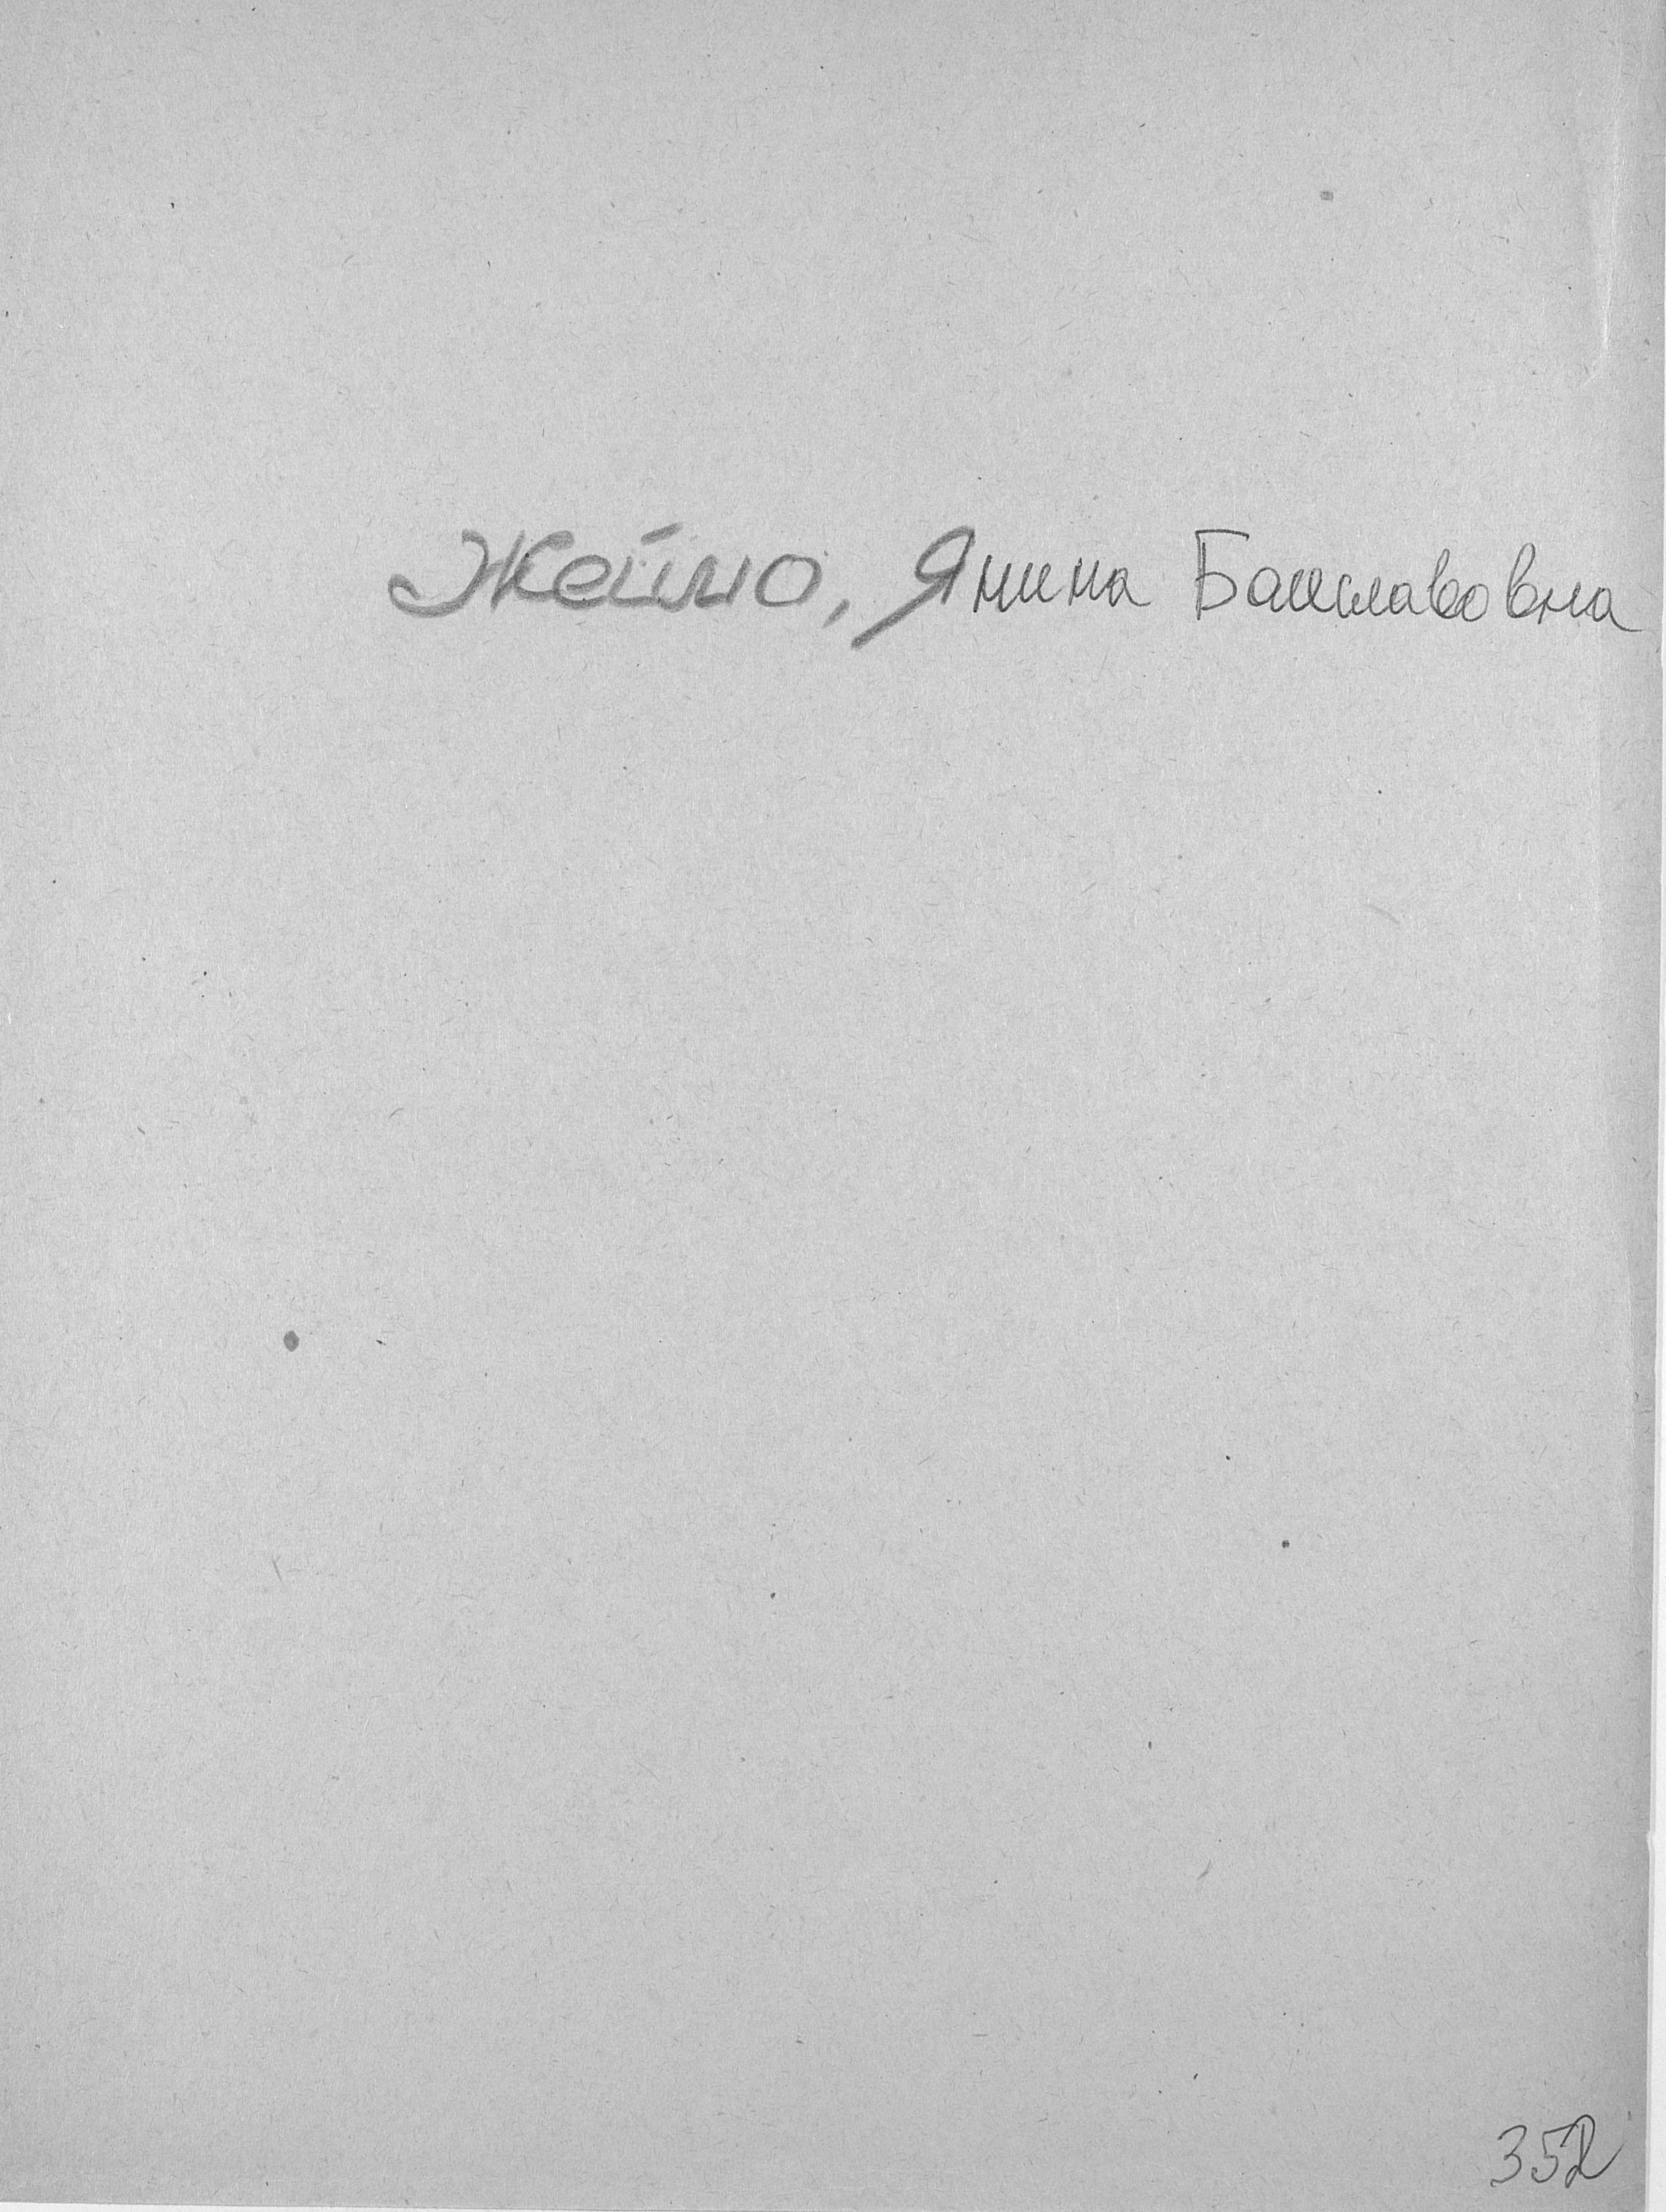 Жеймо, Янина Баиславовна
352